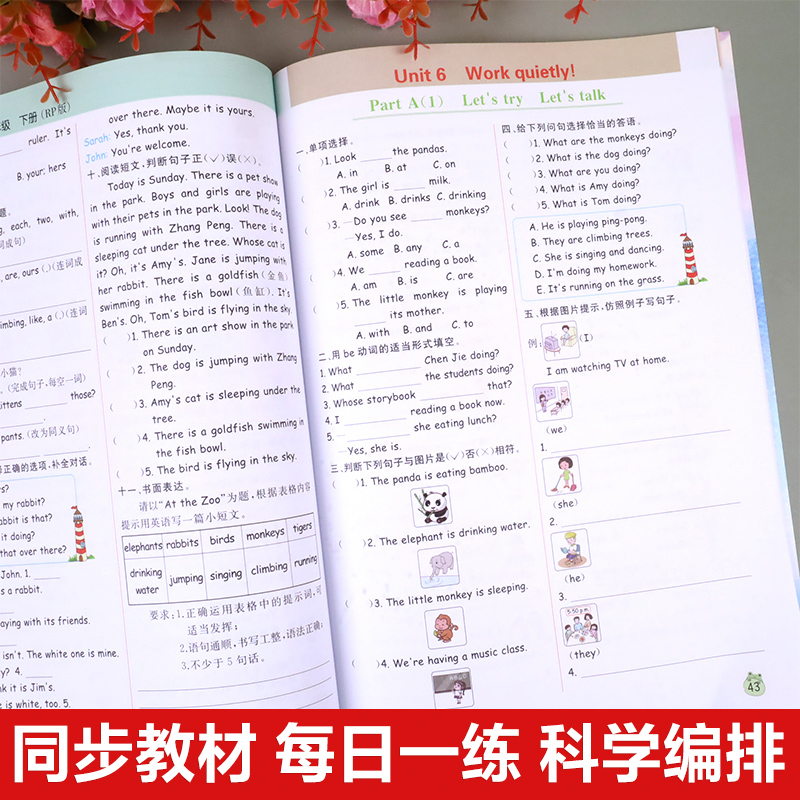 级 下册(RP版)
ruler. It's
B. your; hers
题。
g, each, two, with,
词成句)
are, ours (.)(连词成
imbing, like, a (.)(连词
小猫?
(完成句子,每空一词)
ittens ______ those?
pants. (改为同义句)
正确的选项,补全对话。
rs?
my rabbit?
rabbit is that?
it doing?
that over there?
John. 1.
s a rabbit.
aying with its friends.
isn't. The white one is mine.
y? 4.
nk it is Jim's.
e is white, too. 5.
over there. Maybe it is yours.
Sarah: Yes, thank you.
John: You're welcome.
十、阅读短文,判断句子正(✓)误(×)。
Today is Sunday. There is a pet show
in the park. Boys and girls are playing
with their pets in the park. Look! The dog
is running with Zhang Peng. There is a
sleeping cat under the tree. Whose cat is
it? Oh, it's Amy's. Jane is jumping with
her rabbit. There is a goldfish(金鱼)
swimming in the fish bowl(鱼缸). It's
Ben's. Oh, Tom's bird is flying in the sky.
( )1. There is an art show in the park
on Sunday.
( )2. The dog is jumping with Zhang
Peng.
( )3. Amy's cat is sleeping under the
tree.
( )4. There is a goldfish swimming in
the fish bowl.
( )5. The bird is flying in the sky.
十一、书面表达。
请以“At the Zoo”为题,根据表格内容
提示用英语写一篇小短文。
elephants rabbits birds monkeys tigers
drinking water jumping singing climbing running
要求:1.正确运用表格中的提示词,可
适当发挥;
2.语句通顺,书写工整,语法正确;
3.不少于5句话。
Unit 6 Work quietly!
Part A(1) Let's try Let's talk
一、单项选择。
( )1. Look ______ the pandas.
A. in B. at C. on
( )2. The girl is ______ milk.
A. drink B. drinks C. drinking
( )3. —Do you see ______ monkeys?
—Yes, I do.
A. some B. any C. a
( )4. We ______ reading a book.
A. am B. is C. are
( )5. The little monkey is playing
______ its mother.
A. with B. and C. to
二、用 be 动词的适当形式填空。
1. What ______ Chen Jie doing?
2. What ______ the students doing?
3. Whose storybook ______ that?
4. I ______ reading a book now.
5. —______ she eating lunch?
—Yes, she is.
三、判断下列句子与图片是(✓)否(×)相符。
( )1. The panda is eating bamboo.
( )2. The elephant is drinking water.
( )3. The little monkey is sleeping.
( )4. We're having a music class.
四、给下列问句选择恰当的答语。
( )1. What are the monkeys doing?
( )2. What is the dog doing?
( )3. What are you doing?
( )4. What is Amy doing?
( )5. What is Tom doing?
A. He is playing ping-pong.
B. They are climbing trees.
C. She is singing and dancing.
D. I'm doing my homework.
E. It's running on the grass.
五、根据图片提示,仿照例子写句子。
例: (I)
I am watching TV at home.
(we)
1.
(she)
2.
(he)
3.
5:50 pm
(they)
4.
43
同步教材 每日一练 科学编排